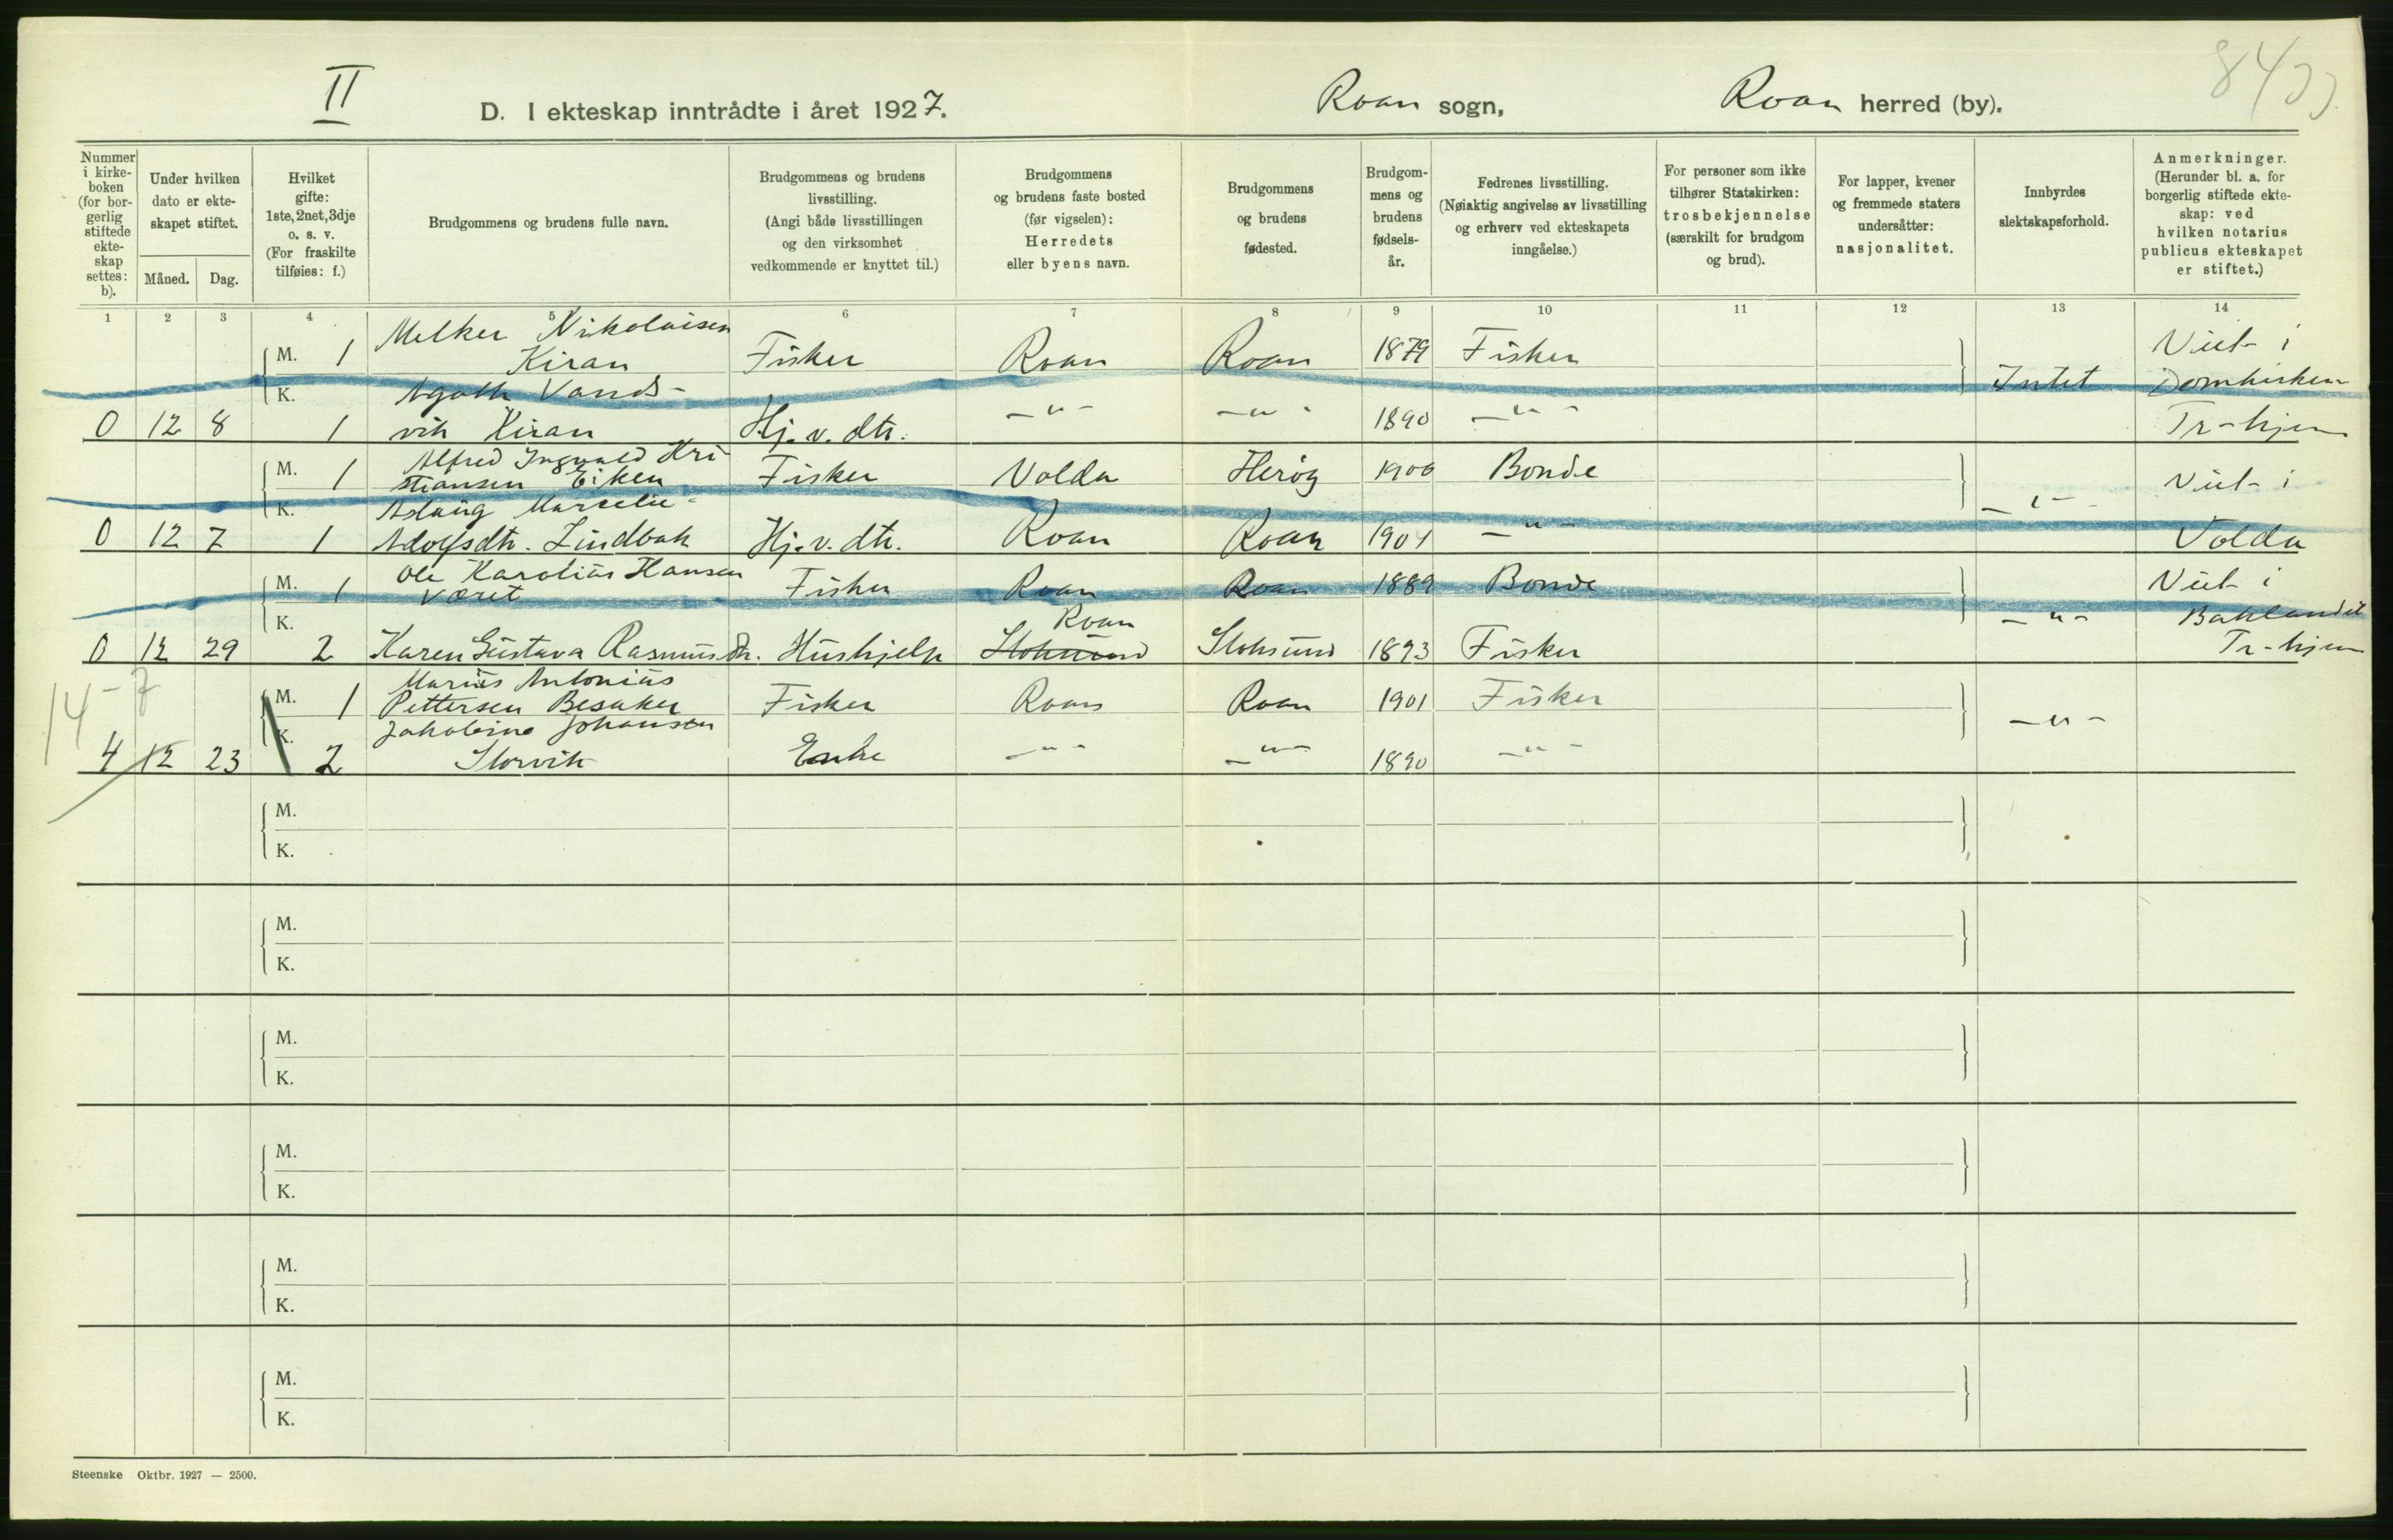 II
D. I ekteskap inntrådte i året 1927. Roan sogn, Roan herred (by).
Nummer i kirke-boken (for bor-gerlig stiftede ekte-skap settes: b).
Under hvilken dato er ekte-skapet stiftet.
Måned. Dag.
Hvilket gifte: 1ste, 2net, 3dje o. s. v. (For fraskilte tilføies: f.)
Brudgommens og brudens fulle navn.
Brudgommens og brudens livsstilling. (Angi både livsstillingen og den virksomhet vedkommende er knyttet til.)
Brudgommens og brudens faste bosted (før vigselen): Herredets eller byens navn.
Brudgommens og brudens fødested.
Brudgom-mens og brudens fødsels-år.
Fedrenes livsstilling. (Nøiaktig angivelse av livsstilling og erhverv ved ekteskapets inngåelse.)
For personer som ikke tilhører Statskirken: trosbekjennelse (særskilt for brudgom og brud).
For lapper, kvener og fremmede staters undersåtter: nasjonalitet.
Innbyrdes slektskapsforhold.
Anmerkninger. (Herunder bl. a. for borgerlig stiftede ekte-skap: ved hvilken notarius publicus ekteskapet er stiftet.)
1 2 3 4 5 6 7 8 9 10 11 12 13 14
M. 1 Melker Nikolaisen Kiran Fisker Roan Roan 1879 Fisker Viet i
K. Agoth Vands- Intet Domkirken
0 12 8 1 vik Kiran Hj. v. dtr. -"- -"- 1890 -"- Tr-hjem
M. 1 Alfred Ingvald Kri
stiansen Eiken Fisker Volda Herøy 1906 Bonde Viet i
K. Aslaug Marcelie -"-
0 12 7 1 Adolfsdtr. Lindbak Hj. v. dtr. Roan Roan 1904 -"- Volda
M. 1 Ole Karolius Hansen
Været Fisker Roan Roan 1889 Bonde Viet i
K. Roan -"- Baklandet
0 12 29 2 Karen Gustava Rasmusdtr. Hushjelp Stoksund Stoksund 1893 Fisker Tr-hjem
14-7
M. 1 Marius Antonius
Pettersen Besaker Fisker Roan Roan 1901 Fisker -"-
K. Jakobine Johansen
4 12 23 2 Storvik Enke -"- -"- 1890 -"-
M.
K.
M.
K.
M.
K.
M.
K.
M.
K.
M.
K.
Steenske Oktbr. 1927 — 2500.